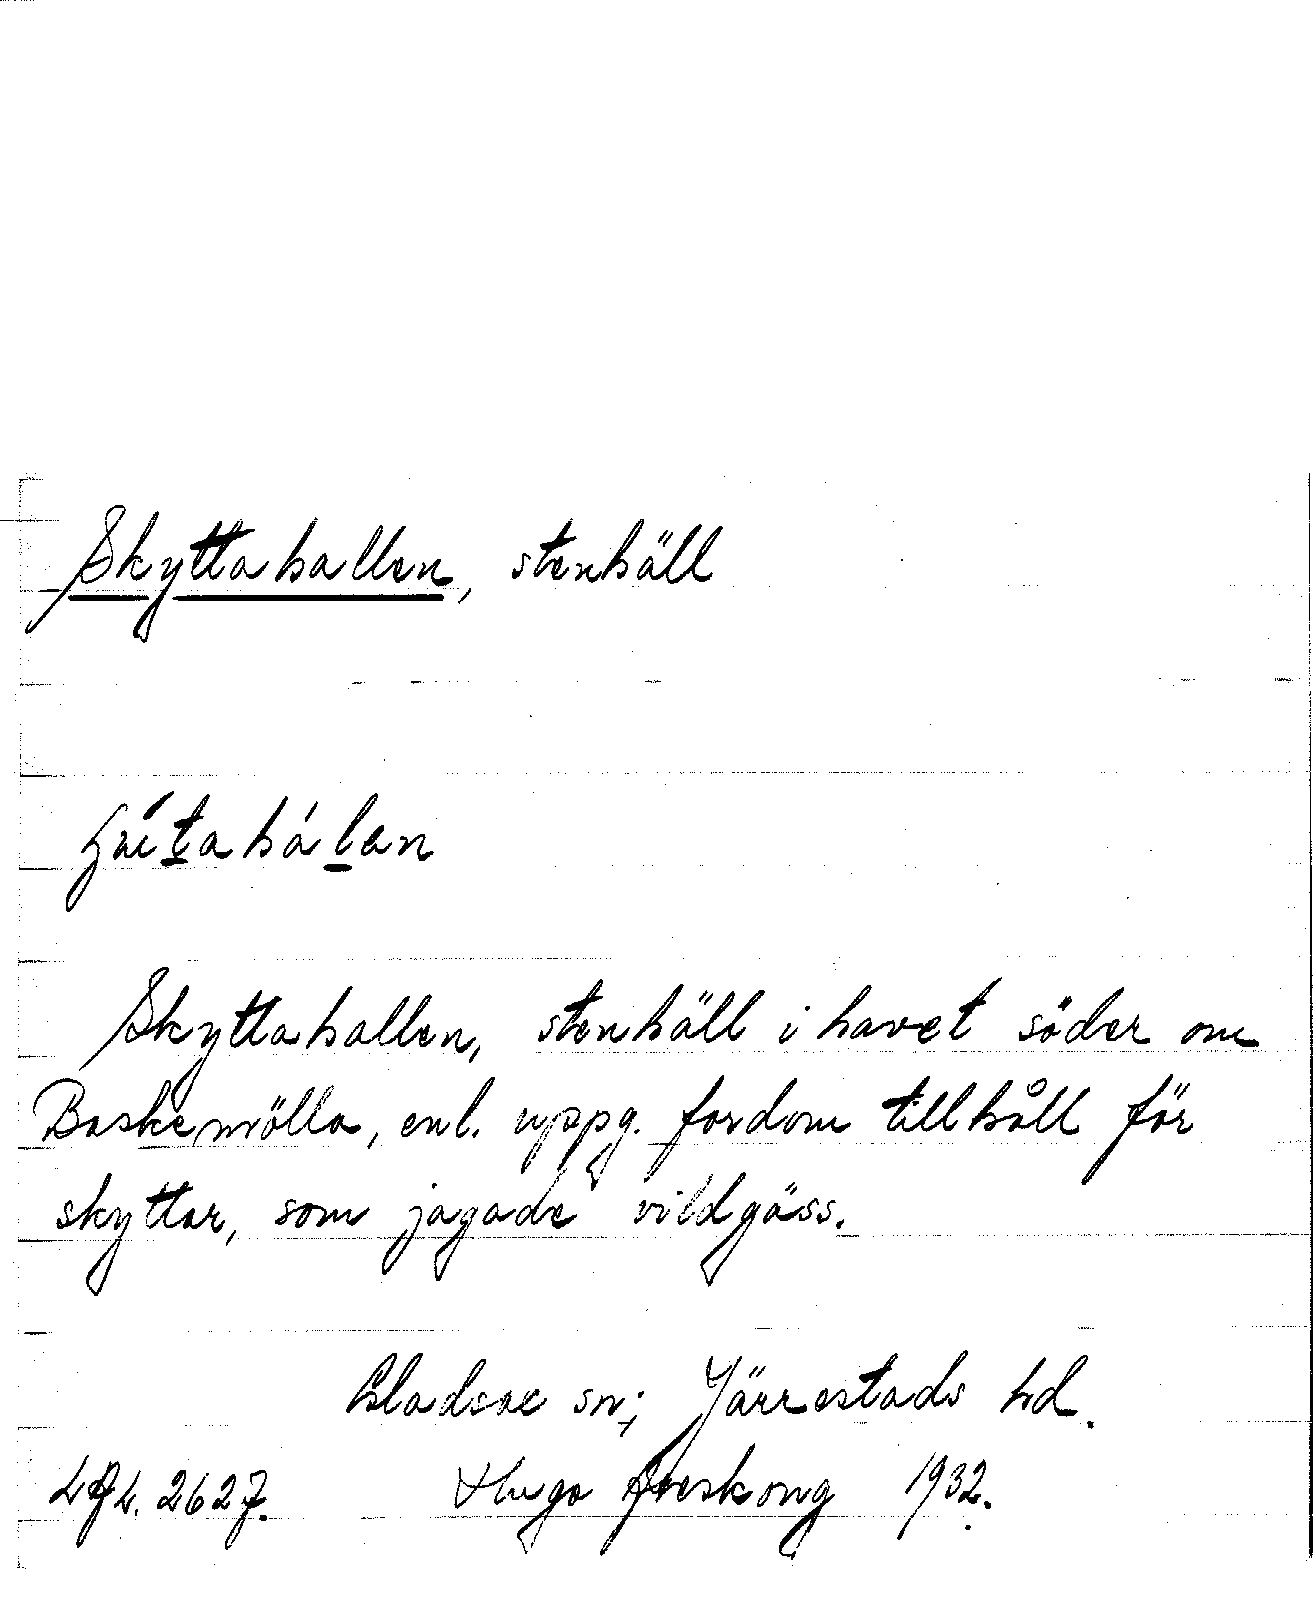 Skyttahallen, stenhäll
Skyttahallen, stenhäll i havet söder om
Baskemölla, enl. uppg. fordom tillhåll för
skyttar, som jagade vildgäss.
Gladsax sn; Järrestads hd.
2627. Hugo Areskoug 1932.